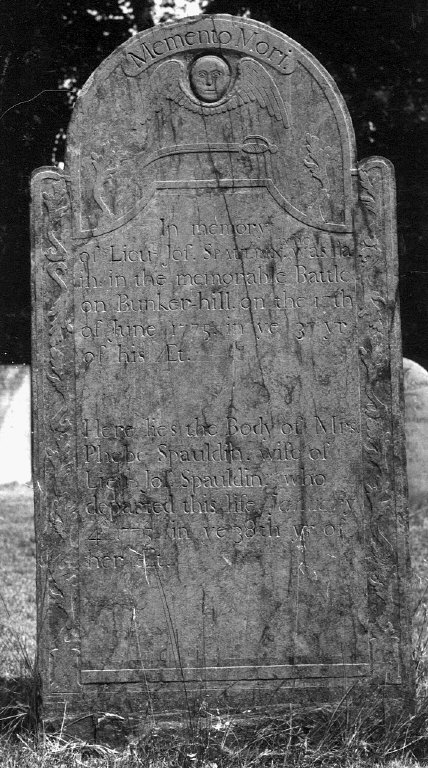 Memento Mori.
In memory
of Lieut Jos. was
in the memorable Battle
on Bunker hill, on the 17th
of June 1775, in ye 37 yr.
of his Æt.
Here lies the Body of Mrs
Phebe Spauldin, wife of
Lieut Jos Spauldin, who
departed this life
4 in ye 38th yr of
her Æt.